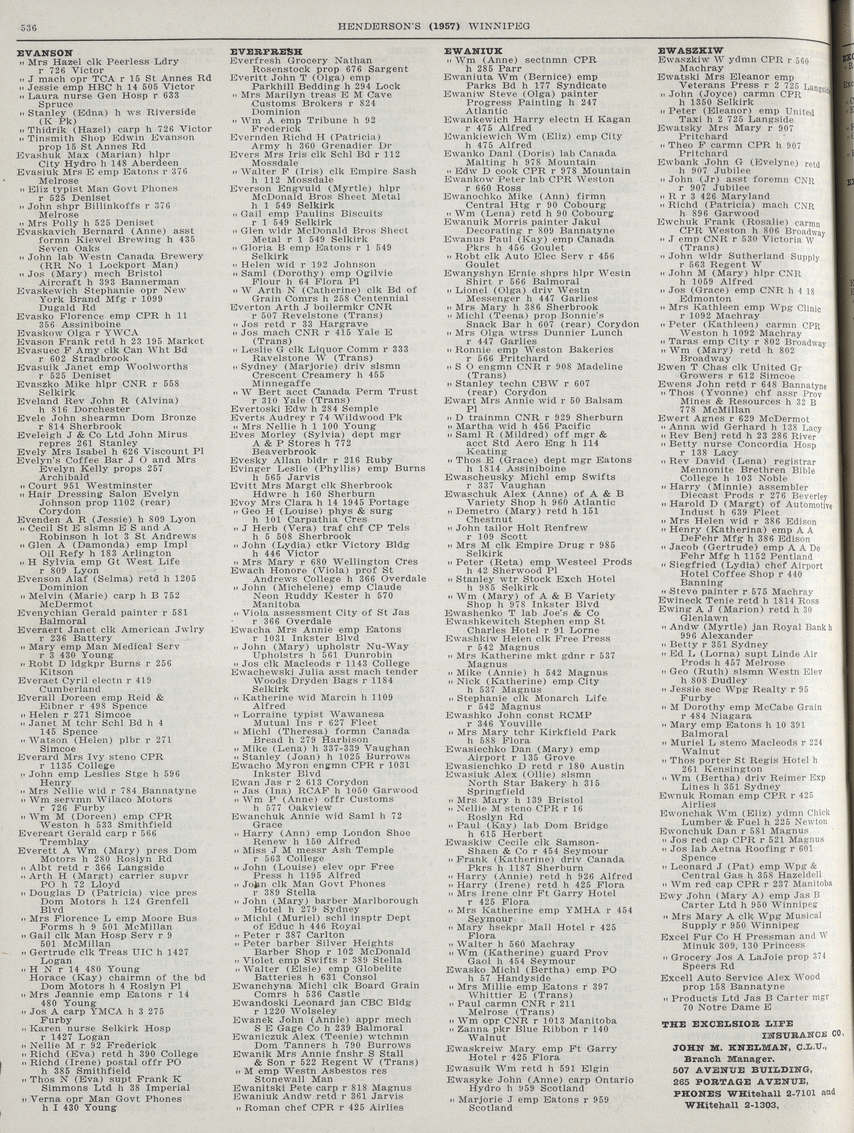 536
HENDERSON'S (1957) WINNIPEG
EVANSON
" Mrs Hazel clk Peerless Ldry
r 726 Victor
" J mach opr TCA r 15 St Annes Rd
" Jessie emp HBC h 14 505 Victor
" Laura nurse Gen Hosp r 633
Spruce
" Stanley (Edna) h ws Riverside
(K Pk)
" Thidrik (Hazel) carp h 726 Victor
" Tinsmith Shop Edwin Evanson
prop 15 St Annes Rd
Evashuk Max (Marian) hlpr
City Hydro h 148 Aberdeen
Evasiuk Mrs E emp Eatons r 376
Melrose
" Eliz typist Man Govt Phones
r 525 Deniset
" John shpr Billinkoffs r 376
Melrose
" Mrs Polly h 525 Deniset
Evaskavich Bernard (Anne) asst
formn Kiewel Brewing h 435
Seven Oaks
" John lab Westn Canada Brewery
(RR No 1 Lockport Man)
" Jos (Mary) mech Bristol
Aircraft h 393 Bannerman
Evaskewich Stephanie opr New
York Brand Mfg r 1099
Dugald Rd
Evasko Florence emp CPR h 11
356 Assiniboine
Evaskow Olga r YWCA
Evason Frank retd h 23 195 Market
Evasuec F Amy clk Can Wht Bd
r 602 Stradbrook
Evasuik Janet emp Woolworths
r 525 Deniset
Evaszko Mike hlpr CNR r 558
Selkirk
Eveland Rev John R (Alvina)
h 816 Dorchester
Evele John shearmn Dom Bronze
r 814 Sherbrook
Eveleigh J & Co Ltd John Mirus
repres 261 Stanley
Evely Mrs Isabel h 626 Viscount Pl
Evelyn's Coffee Bar J O and Mrs
Evelyn Kelly props 257
Archibald
" Court 951 Westminster
" Hair Dressing Salon Evelyn
Johnson prop 1102 (rear)
Corydon
Evenden A R (Jessie) h 809 Lyon
" Cecil St E slsmn E S and A
Robinson h lot 3 St Andrews
" Glen A (Damonda) emp Impl
Oil Refy h 183 Arlington
" H Sylvia emp Gt West Life
r 809 Lyon
Evenson Alaf (Selma) retd h 1205
Dominion
" Melvin (Marie) carp h B 752
McDermot
Evenychian Gerald painter r 581
Balmoral
Everaert Janet clk American Jwlry
r 236 Battery
" Mary emp Man Medical Serv
r 3 430 Young
" Robt D ldgkpr Burns r 256
Kitson
Everaet Cyril electn r 419
Cumberland
Everall Doreen emp Reid &
Eibner r 498 Spence
" Helen r 271 Simcoe
" Janet M tchr Schl Bd h 4
145 Spence
" Watson (Helen) plbr r 271
Simcoe
Everard Mrs Ivy steno CPR
r 1135 College
" John emp Leslies Stge h 596
Henry
" Mrs Nellie wid r 784 Bannatyne
" Wm servmn Wilaco Motors
r 726 Furby
" Wm M (Doreen) emp CPR
Weston h 533 Smithfield
Evereart Gerald carp r 566
Tremblay
Everett A Wm (Mary) pres Dom
Motors h 280 Roslyn Rd
" Albt retd r 366 Langside
" Arth H (Margt) carrier supvr
PO h 72 Lloyd
" Douglas D (Patricia) vice pres
Dom Motors h 124 Grenfell
Blvd
" Mrs Florence L emp Moore Bus
Forms h 9 501 McMillan
" Gail clk Man Hosp Serv r 9
501 McMillan
" Gertrude clk Treas UIC h 1427
Logan
" H N r 14 480 Young
" Horace (Kay) chairmn of the bd
Dom Motors h 4 Roslyn Pl
" Mrs Jeannie emp Eatons r 14
480 Young
" Jos A carp YMCA h 3 275
Furby
" Karen nurse Selkirk Hosp
r 1427 Logan
" Nellie M r 92 Frederick
" Richd (Eva) retd h 390 College
" Richd (Irene) postal offr PO
h 385 Smithfield
" Thos N (Eva) supt Frank K
Simmons Ltd h 38 Imperial
" Verna opr Man Govt Phones
h I 430 Young
EVERFRESH
Everfresh Grocery Nathan
Rosenstock prop 676 Sargent
Everitt John T (Olga) emp
Parkhill Bedding h 294 Lock
" Mrs Marilyn treas E M Cave
Customs Brokers r 824
Dominion
" Wm A emp Tribune h 92
Frederick
Evernden Richd H (Patricia)
Army h 360 Grenadier Dr
Evers Mrs Iris clk Schl Bd r 112
Mossdale
" Walter F (Iris) clk Empire Sash
h 112 Mossdale
Everson Engvuld (Myrtle) hlpr
McDonald Bros Sheet Metal
h 1 549 Selkirk
" Gail emp Paulins Biscuits
r 1 549 Selkirk
" Glen wldr McDonald Bros Sheet
Metal r 1 549 Selkirk
" Gloria B emp Eatons r 1 549
Selkirk
" Helen wid r 192 Johnson
" Saml (Dorothy) emp Ogilvie
Flour h 64 Flora Pl
" W Arth N (Catherine) clk Bd of
Grain Comrs h 258 Centennial
Everton Arth J boilermkr CNR
r 507 Revelstone (Trans)
" Jos retd r 33 Hargrave
" Jos mach CNR r 415 Yale E
(Trans)
" Leslie G clk Liquor Comm r 333
Ravelstone W (Trans)
" Sydney (Marjorie) driv slsmn
Crescent Creamery h 455
Minnegaffe
" W Bert acct Canada Perm Trust
r 310 Yale (Trans)
Evertoski Edw h 284 Semple
Everts Audrey r 74 Wildwood Pk
" Mrs Nellie h 1 100 Young
Eves Morley (Sylvia) dept mgr
A & P Stores h 772
Beaverbrook
Evesky Allan bldr r 216 Ruby
Evinger Leslie (Phyllis) emp Burns
h 565 Jarvis
Evitt Mrs Margt clk Sherbrook
Hdwre h 160 Sherburn
Evoy Mrs Clara h 14 1945 Portage
" Geo H (Louise) phys & surg
h 101 Carpathia Cres
" J Herb (Vera) traf chf CP Tels
h 5 508 Sherbrook
" John (Lydia) ctkr Victory Bldg
h 446 Victor
" Mrs Mary r 680 Wellington Cres
Ewach Honore (Viola) prof St
Andrews College h 366 Overdale
" John (Michelene) emp Claude
Neon Ruddy Kester h 570
Manitoba
" Viola assessment City of St Jas
r 366 Overdale
Ewacha Mrs Annie emp Eatons
r 1031 Inkster Blvd
" John (Mary) upholstr Nu-Way
Upholstrs h 561 Dunrobin
" Jos clk Macleods r 1143 College
Ewachewski Julia asst mach tender
Woods Dryden Bags r 1184
Selkirk
" Katherine wid Marcin h 1109
Alfred
" Lorraine typist Wawanesa
Mutual Ins r 627 Fleet
" Michl (Theresa) formn Canada
Bread h 279 Harbison
" Mike (Lena) h 337-339 Vaughan
" Stanley (Joan) h 1025 Burrows
Ewacho Myron engmn CPR r 1031
Inkster Blvd
Ewan Jas r 2 613 Corydon
" Jas (Ina) RCAF h 1050 Garwood
" Wm P (Anne) offr Customs
h 577 Oakview
Ewanchuk Annie wid Saml h 72
Grace
" Harry (Ann) emp London Shoe
Renew h 150 Alfred
" Miss J M messr Ash Temple
r 563 College
" John (Louise) elev opr Free
Press h 1195 Alfred
" John clk Man Govt Phones
r 389 Stella
" John (Mary) barber Marlborough
Hotel h 279 Sydney
" Michl (Muriel) schl insptr Dept
of Educ h 446 Royal
" Peter r 387 Carlton
" Peter barber Silver Heights
Barber Shop r 102 McDonald
" Violet emp Swifts r 389 Stella
" Walter (Elsie) emp Globelite
Batteries h 631 Consol
Ewanchyna Michl clk Board Grain
Comrs h 526 Castle
Ewandoski Leonard jan CBC Bldg
r 1220 Wolseley
Ewanek John (Annie) appr mech
S E Gage Co h 239 Balmoral
Ewaniczuk Alex (Teenie) wtchmn
Dom Tanners h 790 Burrows
Ewanik Mrs Annie fnshr S Stall
& Son r 522 Regent W (Trans)
" M emp Westn Asbestos res
Stonewall Man
Ewanitski Pete carp r 818 Magnus
Ewaniuk Andw retd r 361 Jarvis
" Roman chef CPR r 425 Airlies
EWANIUK
" Wm (Anne) sectnmn CPR
h 285 Parr
Ewaniuta Wm (Bernice) emp
Parks Bd h 177 Syndicate
Ewaniw Steve (Olga) painter
Progress Painting h 247
Atlantic
Ewankewich Harry electn H Kagan
r 475 Alfred
Ewankiewich Wm (Eliz) emp City
h 475 Alfred
Ewanko Danl (Doris) lab Canada
Malting h 978 Mountain
" Edw D cook CPR r 978 Mountain
Ewankow Peter lab CPR Weston
r 660 Ross
Ewanochko Mike (Ann) firmn
Central Htg r 90 Cobourg
" Wm (Lena) retd h 90 Cobourg
Ewanuik Morris painter Jakul
Decorating r 809 Bannatyne
Ewanus Paul (Kay) emp Canada
Pkrs h 456 Goulet
" Robt clk Auto Elec Serv r 456
Goulet
Ewanyshyn Ernie shprs hlpr Westn
Shirt r 566 Balmoral
" Lionel (Olga) driv Westn
Messenger h 447 Garlies
" Mrs Mary h 386 Sherbrook
" Michl (Teena) prop Bonnie's
Snack Bar h 607 (rear) Corydon
" Mrs Olga wtrss Dunnier Lunch
r 447 Garlies
" Ronnie emp Weston Bakeries
r 566 Pritchard
" S O engmn CNR r 908 Madeline
(Trans)
" Stanley techn CBW r 607
(rear) Corydon
Ewart Mrs Annie wid r 50 Balsam
Pl
" D trainmn CNR r 929 Sherburn
" Martha wid h 456 Pacific
" Saml R (Mildred) off mgr &
acct Std Aero Eng h 114
Keating
" Thos E (Grace) dept mgr Eatons
h 1814 Assiniboine
Ewascheusky Michl emp Swifts
r 337 Vaughan
Ewaschuk Alex (Anne) of A & B
Variety Shop h 960 Atlantic
" Demetro (Mary) retd h 151
Chestnut
" John tailor Holt Renfrew
r 109 Scott
" Mrs M clk Empire Drug r 985
Selkirk
" Peter (Reta) emp Westeel Prods
h 42 Sherwood Pl
" Stanley wtr Stock Exch Hotel
h 985 Selkirk
" Wm (Mary) of A & B Variety
Shop h 978 Inkster Blvd
Ewashenko T lab Joe's & Co
Ewashkewitch Stephen emp St
Charles Hotel r 91 Lorne
Ewashkiw Helen clk Free Press
r 542 Magnus
" Mrs Katherine mkt gdnr r 537
Magnus
" Mike (Annie) h 542 Magnus
" Nick (Katherine) emp City
h 537 Magnus
" Stephanie clk Monarch Life
r 542 Magnus
Ewashko John const RCMP
r 346 Youville
" Mrs Mary tchr Kirkfield Park
h 588 Flora
Ewasiechko Dan (Mary) emp
Airport r 135 Grove
Ewasienchko D retd r 180 Austin
Ewasiuk Alex (Ollie) slsmn
North Star Bakery h 315
Springfield
" Mrs Mary h 139 Bristol
" Nellie M steno CPR r 16
Roslyn Rd
" Paul (Kay) lab Dom Bridge
h 615 Herbert
Ewaskiw Cecile clk Samson-
Shaen & Co r 454 Seymour
" Frank (Katherine) driv Canada
Pkrs h 1187 Sherburn
" Harry (Annie) retd h 926 Alfred
" Harry (Irene) retd h 425 Flora
" Mrs Irene clnr Ft Garry Hotel
r 425 Flora
" Mrs Katherine emp YMHA r 454
Seymour
" Mary hsekpr Mall Hotel r 425
Flora
" Walter h 560 Machray
" Wm (Katherine) guard Prov
Gaol h 454 Seymour
Ewasko Michl (Bertha) emp PO
h 57 Handyside
" Mrs Millie emp Eatons r 397
Whittier E (Trans)
" Paul carmn CPR r 211
Melrose (Trans)
" Wm opr CNR r 1013 Manitoba
" Zanna pkr Blue Ribbon r 140
Walnut
Ewaskreiw Mary emp Ft Garry
Hotel r 425 Flora
Ewasuik Wm retd h 591 Elgin
Ewasyke John (Anne) carp Ontario
Hydro h 959 Scotland
" Marjorie J emp Eatons r 959
Scotland
EWASZKIW
Ewaszkiw W ydmn CPR r 560
Machray
Ewatski Mrs Eleanor emp
Veterans Press r 2 725 Langside
" John (Joyce) carmn CPR
h 1350 Selkirk
" Peter (Eleanor) emp United
Taxi h 2 725 Langside
Ewatsky Mrs Mary r 907
Pritchard
" Theo F carmn CPR h 907
Pritchard
Ewbank John G (Evelyne) retd
h 907 Jubilee
" John (Jr) asst foremn CNR
r 907 Jubilee
" R r 3 426 Maryland
" Richd (Patricia) mach CNR
h 896 Garwood
Ewchuk Frank (Rosalie) carmn
CPR Weston h 806 Broadway
" J emp CNR r 530 Victoria W
(Trans)
" John wldr Sutherland Supply
r 563 Regent W
" John M (Mary) hlpr CNR
h 1059 Alfred
" Jos (Grace) emp CNR h 4 18
Edmonton
" Mrs Kathleen emp Wpg Clinic
r 1092 Machray
" Peter (Kathleen) carmn CPR
Weston h 1092 Machray
" Taras emp City r 802 Broadway
" Wm (Mary) retd h 802
Broadway
Ewen T Chas clk United Gr
Growers r 612 Simcoe
Ewens John retd r 648 Bannatyne
" Thos (Yvonne) chf assr Prov
Mines & Resources h 32 B
778 McMillan
Ewert Agnes r 629 McDermot
" Anna wid Gerhard h 138 Lacy
" Rev Benj retd h 23 286 River
" Betty nurse Concordia Hosp
r 138 Lacy
" Rev David (Lena) registrar
Mennonite Brethren Bible
College h 103 Noble
" Harry (Minnie) assembler
Diecast Prods r 276 Beverley
" Harold D (Margt) of Automotive
Indust h 639 Fleet
" Mrs Helen wid r 386 Edison
" Henry (Katherina) emp A A
DeFehr Mfg h 386 Edison
" Jacob (Gertrude) emp A A De
Fehr Mfg h 1152 Pentland
" Siegfried (Lydia) chef Airport
Hotel Coffee Shop r 440
Banning
" Steve painter r 575 Machray
Ewineck Tenie retd h 1814 Ross
Ewing A J (Marion) retd h 30
Glenlawn
" Andw (Myrtle) jan Royal Bank h
996 Alexander
" Betty r 351 Sydney
" Ed L (Lorna) supt Linde Air
Prods h 457 Melrose
" Geo (Ruth) slsmn Westn Elev
h 808 Dudley
" Jessie sec Wpg Realty r 95
Furby
" M Dorothy emp McCabe Grain
r 484 Niagara
" Mary emp Eatons h 10 391
Balmoral
" Muriel L steno Macleods r 224
Walnut
" Thos porter St Regis Hotel h
261 Kensington
" Wm (Bertha) driv Reimer Exp
Lines h 351 Sydney
Ewnuk Roman emp CPR r 425
Airlies
Ewonchak Wm (Eliz) ydmn Chick
Lumber & Fuel h 225 Newton
Ewonchuk Dan r 581 Magnus
" Jos red cap CPR r 521 Magnus
" Jos lab Aetna Roofing r 601
Spence
" Leonard J (Pat) emp Wpg &
Central Gas h 358 Hazeldell
" Wm red cap CPR r 237 Manitoba
Ewy John (Mary A) emp Jas B
Carter Ltd h 950 Winnipeg
" Mrs Mary A clk Wpg Musical
Supply r 950 Winnipeg
Excel Fur Co H Pressman and W
Minuk 309, 130 Princess
" Grocery Jos A LaJoie prop 374
Speers Rd
Excell Auto Service Alex Wood
prop 158 Bannatyne
" Products Ltd Jas B Carter mgr
70 Notre Dame E
THE EXCELSIOR LIFE
INSURANCE CO.
JOHN M. KNELMAN, C.L.U.,
Branch Manager.
507 AVENUE BUILDING,
265 PORTAGE AVENUE,
PHONES WHitehall 2-7101 and
WHitehall 2-1303,